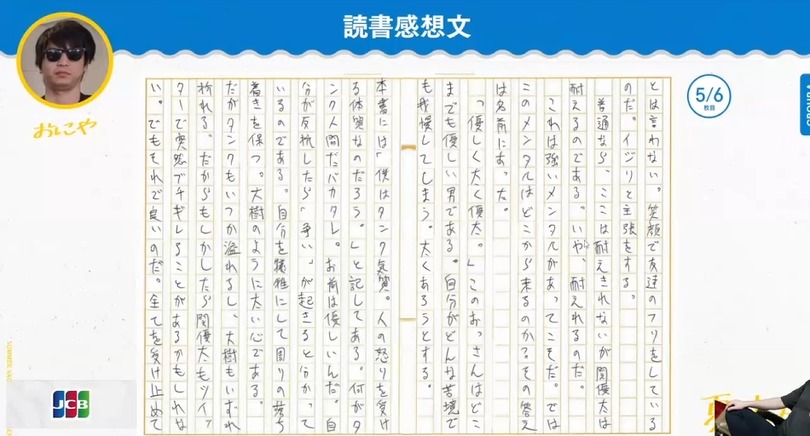 読書感想文
おにや
5/6
枚目
とは言わない。笑顔で友達のフリをしている
のだ。イジリと主張をする。
普通なら、ここは耐えきれないが関優太は
耐えるのである。いや、耐えれるのだ。
これは強いメンタルがあってこそだ。では
このメンタルはどこから来るのか?その答え
は名前にあった。
「優しく太く優太。」このおっさんはどこ
までも優しい男である。自分がどんな苦境で
も我慢してしまう。太くあろうとする。
本書には「僕はタンク気質。人の怒りを受け
る体質なのだろう。」と記してある。何がタ
ンク人間だバカタレ。お前は優しいんだ。自
分が反抗したら「争い」が起きると分かって
いるのである。自分を犠牲にして周りの落ち
着きを保つ。大樹のように太い心である。
だがタンクもいつか溢れるし、大樹もいずれ
折れる。だからもしかしたら関優太もツイッ
ターで突然ブチギレることがあるかもしれな
い。でもそれで良いのだ。全てを受け止めて
JCB